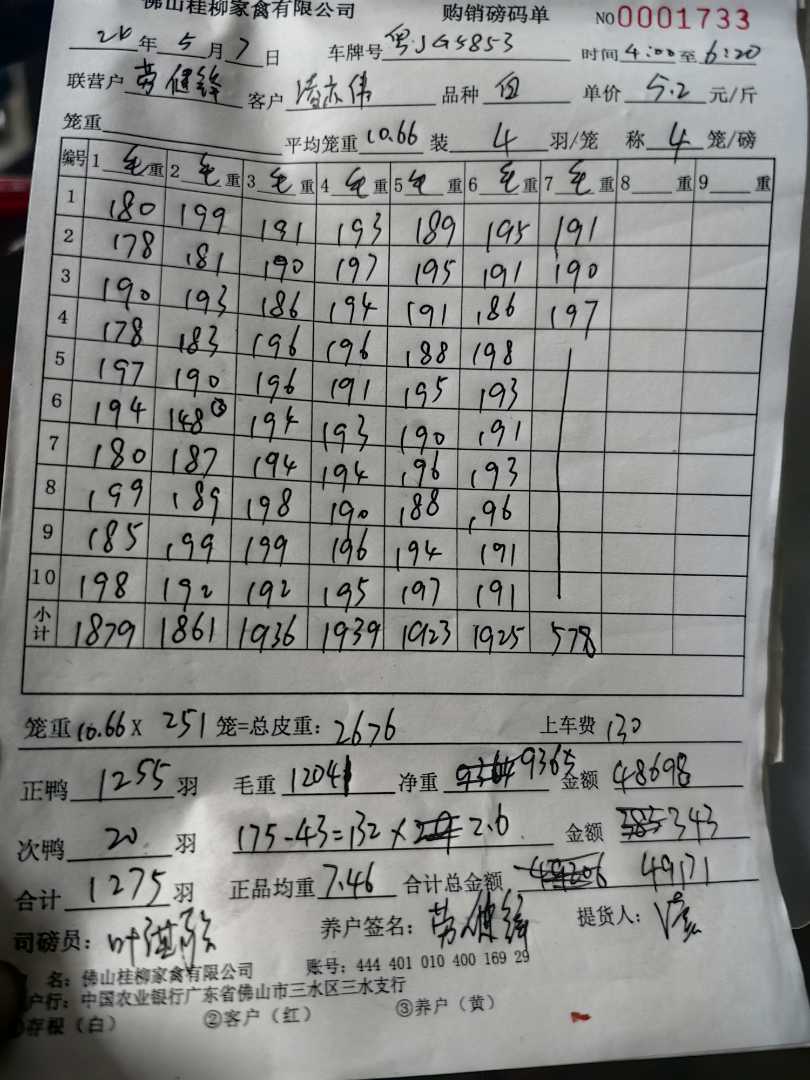 佛山桂柳家禽有限公司 购销磅码单 NO0001733
26年5月7日 车牌号 粤JG5853 时间4:00至6:20
联营户 劳健锋 客户 伟 品种 白 单价 5.2 元/斤
笼重 平均笼重 10.66 装 4 羽/笼 称 4 笼/磅
编号 1 毛重 2 毛重 3 毛重 4 毛重 5 毛重 6 毛重 7 毛重 8 重 9 重
1 180 199 191 193 189 195 191
2 178 181 190 197 195 191 190
3 190 193 186 194 191 186 197
4 178 183 196 196 188 198
5 197 190 196 191 195 193
6 194 148③ 194 193 190 191
7 180 187 194 194 196 193
8 199 189 198 190 188 196
9 185 199 199 196 194 191
10 198 192 192 195 197 191
小计 1879 1861 1936 1939 1923 1925 578
笼重 10.66 X 251 笼=总皮重: 2676 上车费 130
正鸭 1255 羽 毛重 12041 净重 9365 金额 48698
次鸭 20 羽 175-43=132 × 2.6 金额 343
合计 1275 羽 正品均重 7.46 合计总金额 49171
司磅员: 叶 养户签名: 劳健锋 提货人:
名: 佛山桂柳家禽有限公司 账号: 444 401 010 400 169 29
户行: 中国农业银行广东省佛山市三水区三水支行
存根(白) ②客户(红) ③养户(黄)